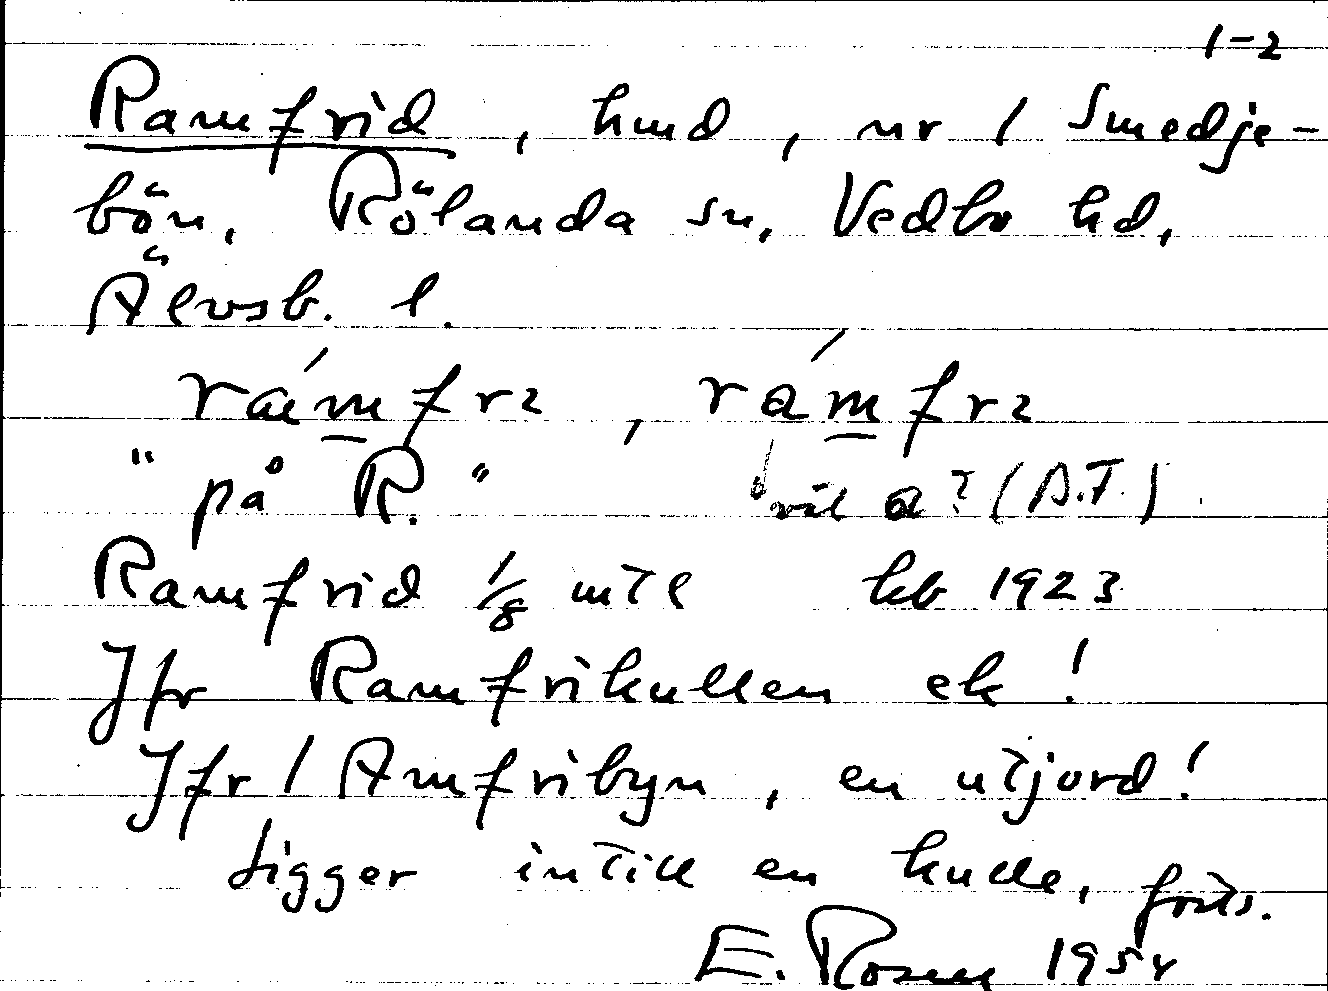 1-2
Ramfrid, hmd, nr 1 Smedje-
bön, Rölanda sn, Vedbo hd,
Älvsb. l.
rámfrı, rámfrı
"på R." väl a? (A.F.)
Ramfrid 1/8 mtl kb 1923
Jfr Ramfrikullen ek!
Jfr / Amfribyn, en utjord!
Ligger intill en kulle, forts.
E. Rosen 1954